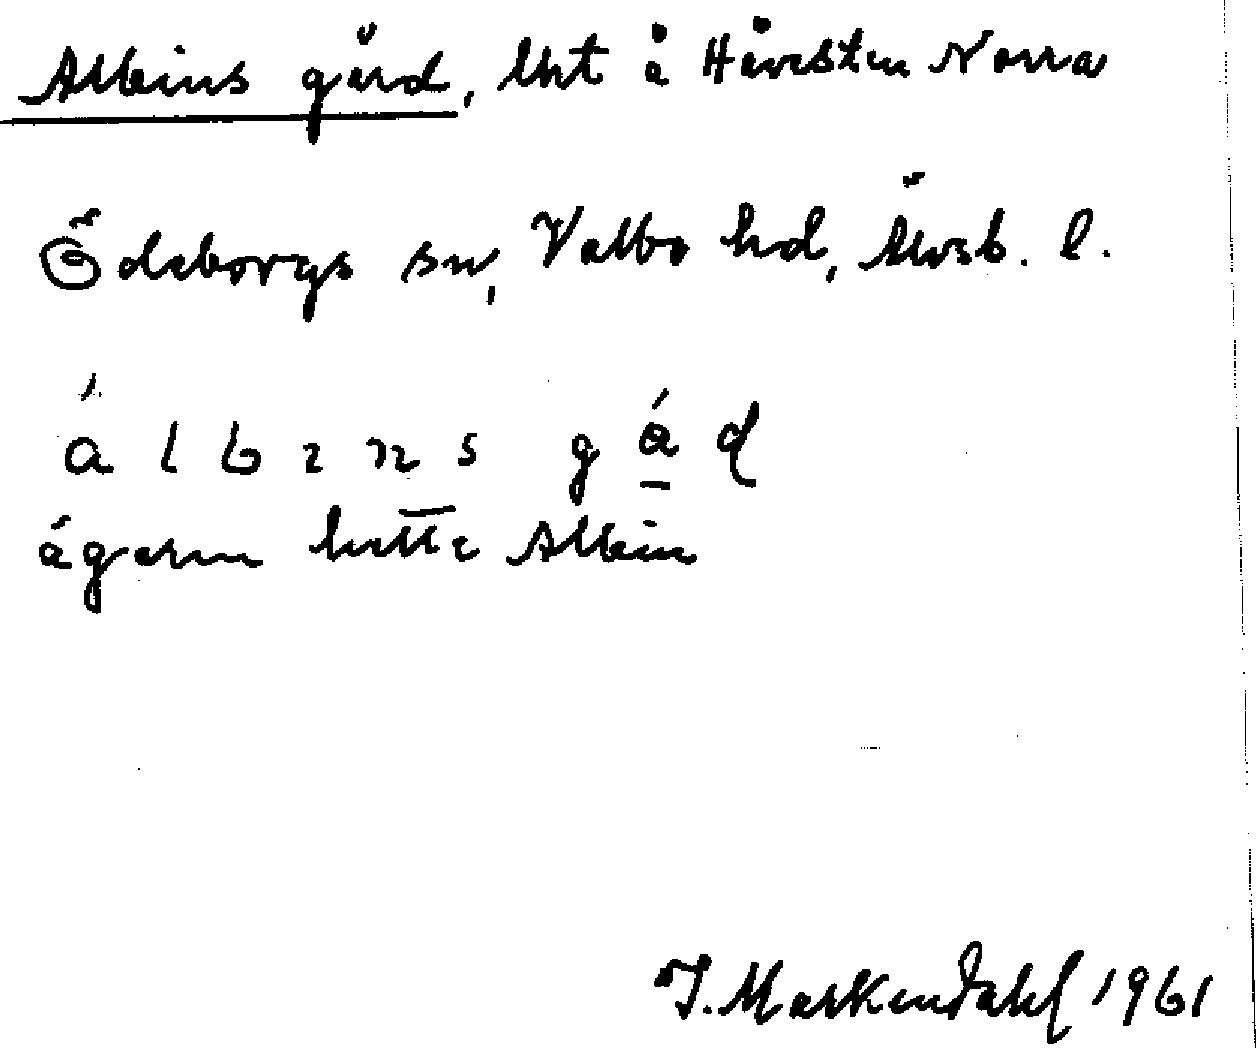 Albins gård, lht å Håvesten Norra
Ödeborgs sn, Valbo hd, Älvsb. l.
á l b ı n s g á d
ägaren hette Albin
J. Markendahl 1961